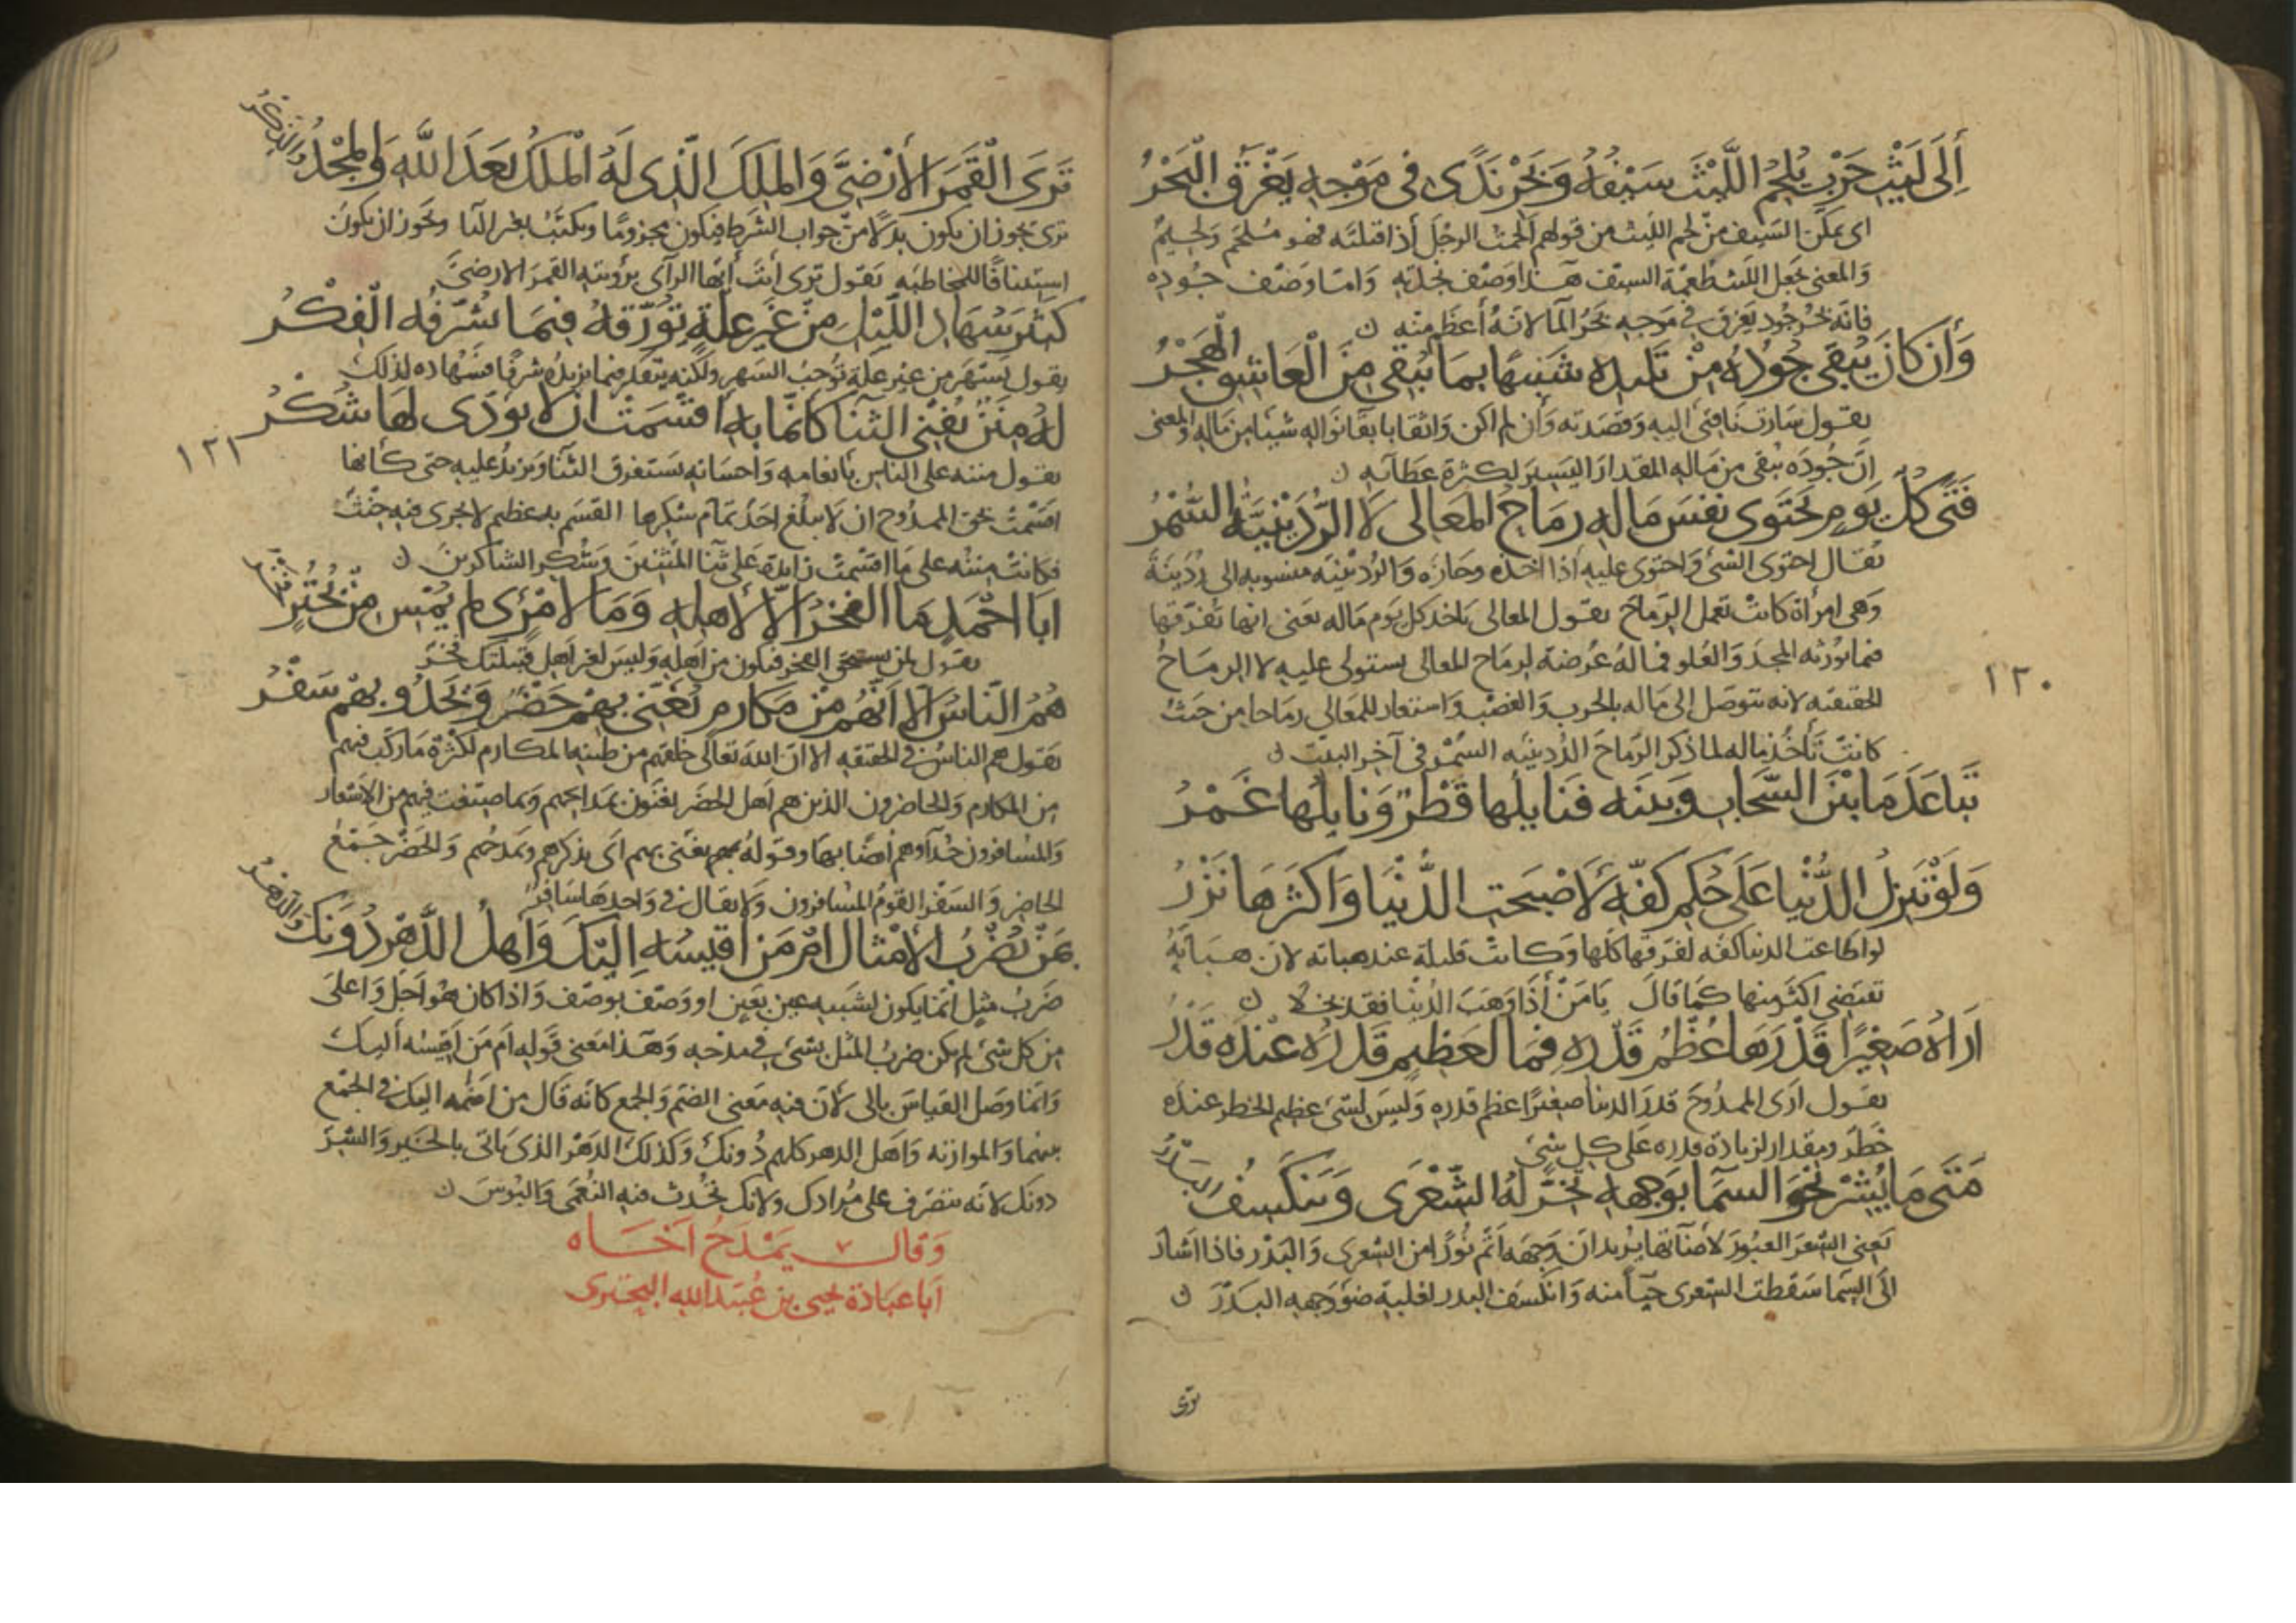 أِلَى لَيْثِ حَرْبٍ يُلْحِمُ اللَّيْثَ سَيْفُهُ وَبَحْرِ نَدًى فى مَوْجِهِ يَغْرَقُ الْبَحْرُ
اى يمكن السيف من لحم الليث من قولهم ألحمت الرجل أذا قتلته فهو ملحم ولحيم
والمعنى يجعل الليث طعمة السيف هذا وصف نجدته وامّا وصف جوده
فانه بحر جود يغرق فى موجه بحر المآ لانه أعظم منه
وَأِنْ كَانَ يُبْقِى جُودُهُ مِنْ تَلِيدِهِ شَبِيهًا بِمَا يُبْقِى مِنَ الْعَاشِقِ الْهَجْرُ
يقول سارت ناقتى اليه وقصدته وأن لم اكن واثقا بابقا نواله شيئا من ماله والمعنى
انّ جوده يبقى من ماله المقدار اليسير لكثرة عطائه
فَتًى كُلَّ يَوْمٍ تَحْتَوِى نَفْسَ مَالِهِ رِمَاحُ المَعَالِى لَا الرُّدَيْنِيَّةُ السُّمْرُ
يقال احتوى الشئ واحتوى عليه أذا اخذه وحازه والردينيه منسوبه الى ردينة
وهى امرأة كانت تعمل الرماح يقول المعالى تاخذ كل يوم ماله يعنى انها تفرقها
فيما يورثه المجد والعلو فماله عرضة لرماح المعالى يستولى عليه لا الرماح
الحقيقيه لانه يتوصل إلى ماله بالحرب والغصب واستعار للمعالى رماحا من حيث
كانت تأخذ ماله لما ذكر الرماح الردينيه السمر فى آخر البيت
تَبَاعَدَ مَا بَيْنَ السَّحَابِ وَبَيْنَه فَنَايِلُهَا قَطْرٌ وَنَايِلُهَا غَمْرُ
وَلَوْ تَنْزِلُ الدُّنْيَا عَلَى حُكْمِ كَفِّهِ لَأَصْبَحَتِ الدُّنْيَا وَاكْثَرُهَا نَزْرُ
لو اطاعت الدنيا كفه لفرقها كلها وكانت قليلة عند هباته لان هباته
تقتضى اكثر منها كما قال يا من أذا وهب الدنيا فقد بخلا
اَرَاهُ صَغِيرًا قَدْرَهَا عُظْمُ قَدْرِهِ فمَا لِعَظِيمٍ قَدْرُهُ عِنْدَهُ قَدْرُ
يقول ارى الممدوح قدر الدنيا صغيرًا عظم قدره وليس لشئ عظيم الخطر عنده
خطر ومقدار لزيادة قدره على كل شئ
مَتَى مَا يُشِرْ نَحْوَ السَّمَآ بِوَجْهِهِ تَخِرَّ لَهُ الشِّعْرَى وَيَنْكَسِفُ البَدْرُ
يعنى الشعرَ العبور لأضآتها يريد ان وجهه اتم نورًا من الشعرى والبدر فاذا اشار
الى السما سقطت الشعرى حيآ منه وانكسف البدر لغلبة ضو وجهه البدر
١٢٠
ترى
تَرَى الْقَمَرَ الأَرْضِىَّ وَالمَلِكَ الَّذِى لَهُ الْمُلْكُ بَعْدَ اللَّهِ وَالمَجْدُ وَالذِّكْرُ
ترى يجوز ان يكون بدلًا من جواب الشرط فيكون مجزومًا ويكتب بغير اليآ ويجوز ان يكون
استئنافًا للمخاطبه يقول ترى أنت أيها الرآى برؤيته القمر الارضىّ
كَثِيرُ سُهَادِ اللَّيْلِ مِنْ غَيْرِ عِلَّةٍ تُؤَرِّقُهُ فِيمَا يُشَرِّفُهُ الْفِكْرُ
يقول يسهر من غير علّة توجب السهر ولكنه يتفكر فيما يزيده شرفًا فسهاده لذلك
لَهُ مِنَنٌ تُفْنِى الثَّنَآ كَأَنَّمَا بِهِ اَقْسَمَتْ اَنْ لا يُؤَدَّى لَهَا شُكْرُ
يقول مننه على الناس بأنعامه واحسانه يستغرق الثنآ ويزيد عليه حتى كأنها
اقسمت بحق الممدوح ان لا يبلغ احد تمام شكرها القسم به عظيم لا يجرى فيه حنث
فكانت مننه على ما اقسمت زايدة على ثنآ المثنين وشكر الشاكرين
١٢١
اَبَا اَحْمَدٍ مَا الْفَخْرُ اِلّا لِأَهْلِهِ وَمَا لِامْرِىءٍ لَمْ يُمْسِ مِنْ بُحْتُرٍ فَخْرُ
يقول لمن يستحق الفخر فيكون من اهله وليس لغير اهل قبيلتك فخر
هُمُ النَّاسُ الّا اَنَّهُم مِنْ مَكَارِمٍ يُغَنِّى بِهِمْ حَضْرٌ وَيَحْدُو بِهِمْ سَفْرُ
يقول هم الناس فى الحقيقه الا ان الله تعالى خلقهم من طينه المكارم لكثرة ما ركب فيهم
من المكارم والحاضرون الذين هم اهل الحضر يغنون بمدايحهم وبما صنفت فيهم من الاشعار
والمسافرون حُدآوهم أيضا بها وقوله يغنى بهم اى بذكرهم ومدحهم والحضر جمع
الحاضر والسفر القوم المسافرون ولا يقال فى واحدها سافر
بِمَنْ تُضْرَبُ الأَمْثَالُ امْ مَنْ أقِيسُهُ اِلَيْكَ وَأَهْلُ الدَّهْرِ دُونَكَ وَالدَّهْرُ
ضرب مثل انما يكون لشبيه عين بعين او وصف بوصف واذا كان هو اجل واعلى
من كل شئ لم يكن ضرب المثل بشئ فى مدحه وهذا معنى قوله ام من اقيسه أليك
وانما وصل القياس بالى لأن فيه معنى الضم والجمع كانه قال من اضمه اليك فى الجمع
بينهما والموازنه واهل الدهر كلهم دونك وكذلك الدهر الذى ياتى بالخير والشر
دونك لانه يتصرف على مرادك ولانك تحدث فيه النعمى والبوس
وَقال يَمْدَحُ اَخَاه
اَبا عبادة يحيى بن عُبَيد الله البحترى